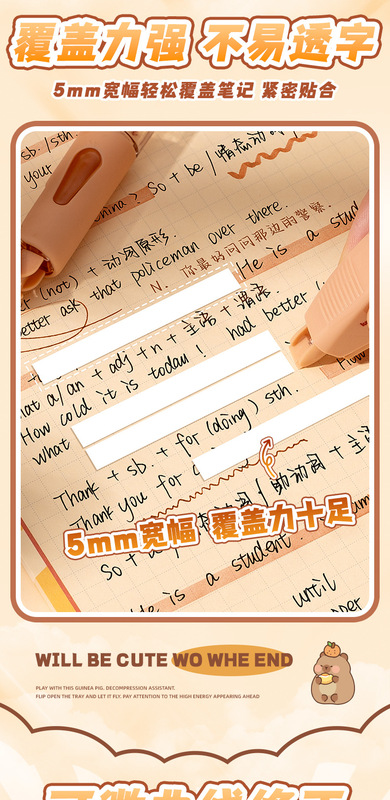 覆盖力强 不易透字
5mm宽幅轻松覆盖笔记 紧密贴合
sb. /sth.
your
China? So + be / 情态动词
(not) + 动词原形.
better ask that policeman over there.
N. 你最好问问那边的警察.
He is a stud
at a/an + adj + n + 主语 + 谓语
How cold it is today! had better (
what
Thank + sb. + for (doing) sth.
Thank you for
助动词 + 主
5mm宽幅 覆盖力十足
So +
He is a student.
until
WILL BE CUTE WO WHE END
PLAY WITH THIS GUINEA PIG. DECOMPRESSION ASSISTANT.
FLIP OPEN THE TRAY AND LET IT FLY. PAY ATTENTION TO THE HIGH ENERGY APPEARING AHEAD